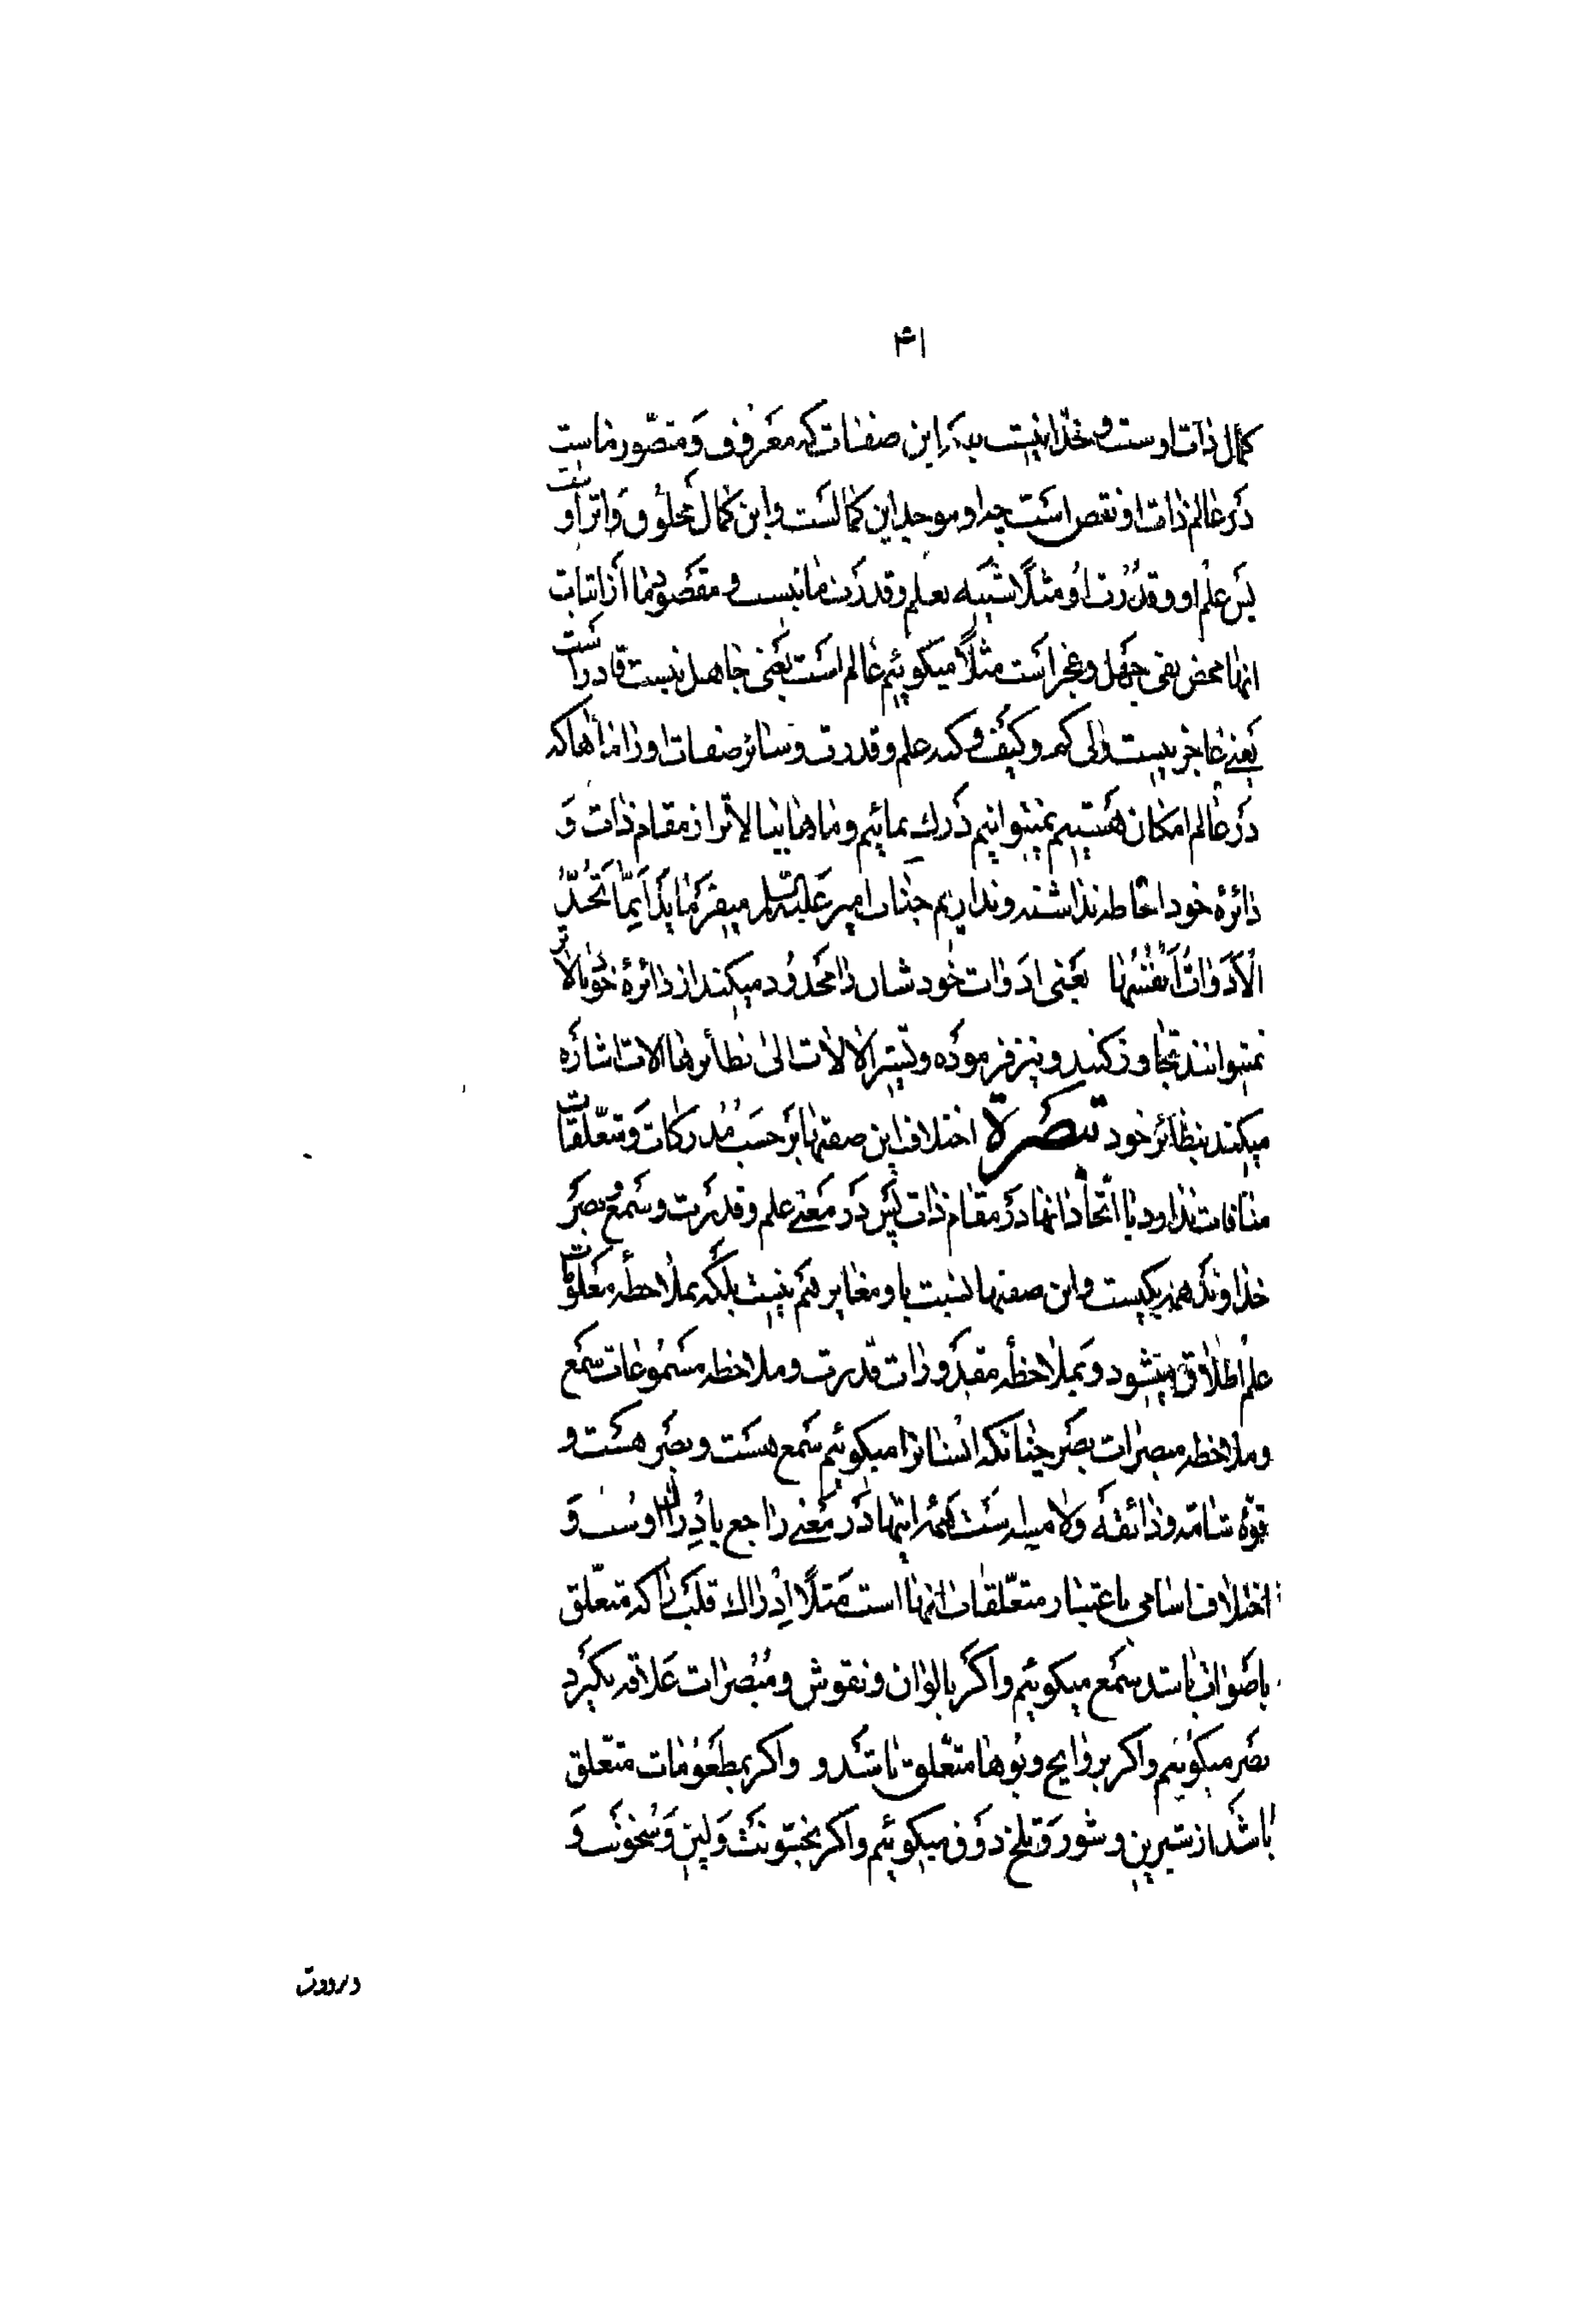 ۴۱
کمال ذات اوست و خدا نیست بدارای این صفات که معروف و متصور ماست
در عالم ذات او نقص است چه او موجد این کمالست و این کمال مخلوق و اثر اوست
پس علم او و قدرت او مثلاً شبیه بعلم و قدرت ما نیست و مقصود ما از اثبات
انها محض نفی جهل و عجز است مثلاً میکوئیم عالم است یعنی جاهل نیست قادر است
یعنی عاجز نیست ولی کم و کیف و کنه علم و قدرت و سائر صفات او را ماها که
در عالم امکان هستیم نمیتوانیم درک نمائیم و ماها بالاتر از مقام ذات و
دائرهٔ خود احاطه نداشته و نداریم جناب امیر علیه السلم میفرماید انما تحد
الادوات انفسها یعنی ادوات خودشان را محدود میکند از دائرهٔ خود بالاتر
نمیتوانند تجاوز کنند و نیز فرموده و تشیر الالات الی نظائرها الات اشاره
میکند بنظائر خود تبصرة اختلاف این صفتها بر حسب مدرکات و متعلقات
منافات ندارد با اتحاد انها در مقام ذات پس در معنی علم و قدرت و سمع و بصر
خداوند همه یکیست و این صفتها نسبت باو مغایر هم نیست بلکه بملاحظه معلومات
علم اطلاق میشود و بملاحظهٔ مقدورات قدرت و ملاحظه مسموعات سمع
و ملاحظه مبصرات بصر چنانکه انسانرا میکوئیم سمع هست و بصر هست و
قوهٔ شامه و ذائقه و لامسه است همهٔ اینها در معنی راجع بادراک اوست و
اختلاف اسامی باعتبار متعلقات انها است مثلاً ادراک قلب را که متعلق
باصوات باشد سمع میکوئیم و اکر بالوان و نقوش و مبصرات علاقه بکیرد
بصر میکوئیم و اکر بروایح و بوها متعلق باشد و واکر بمطعومات متعلق
باشد از شیرین و شور و تلخ ذوق میکوئیم و اکر بخشونت و لین و سخونت و
و برودت